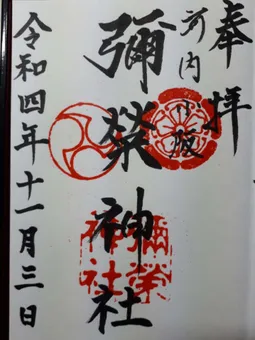 奉拝
河内小阪
彌榮神社
彌榮神社
令和四年十一月三日